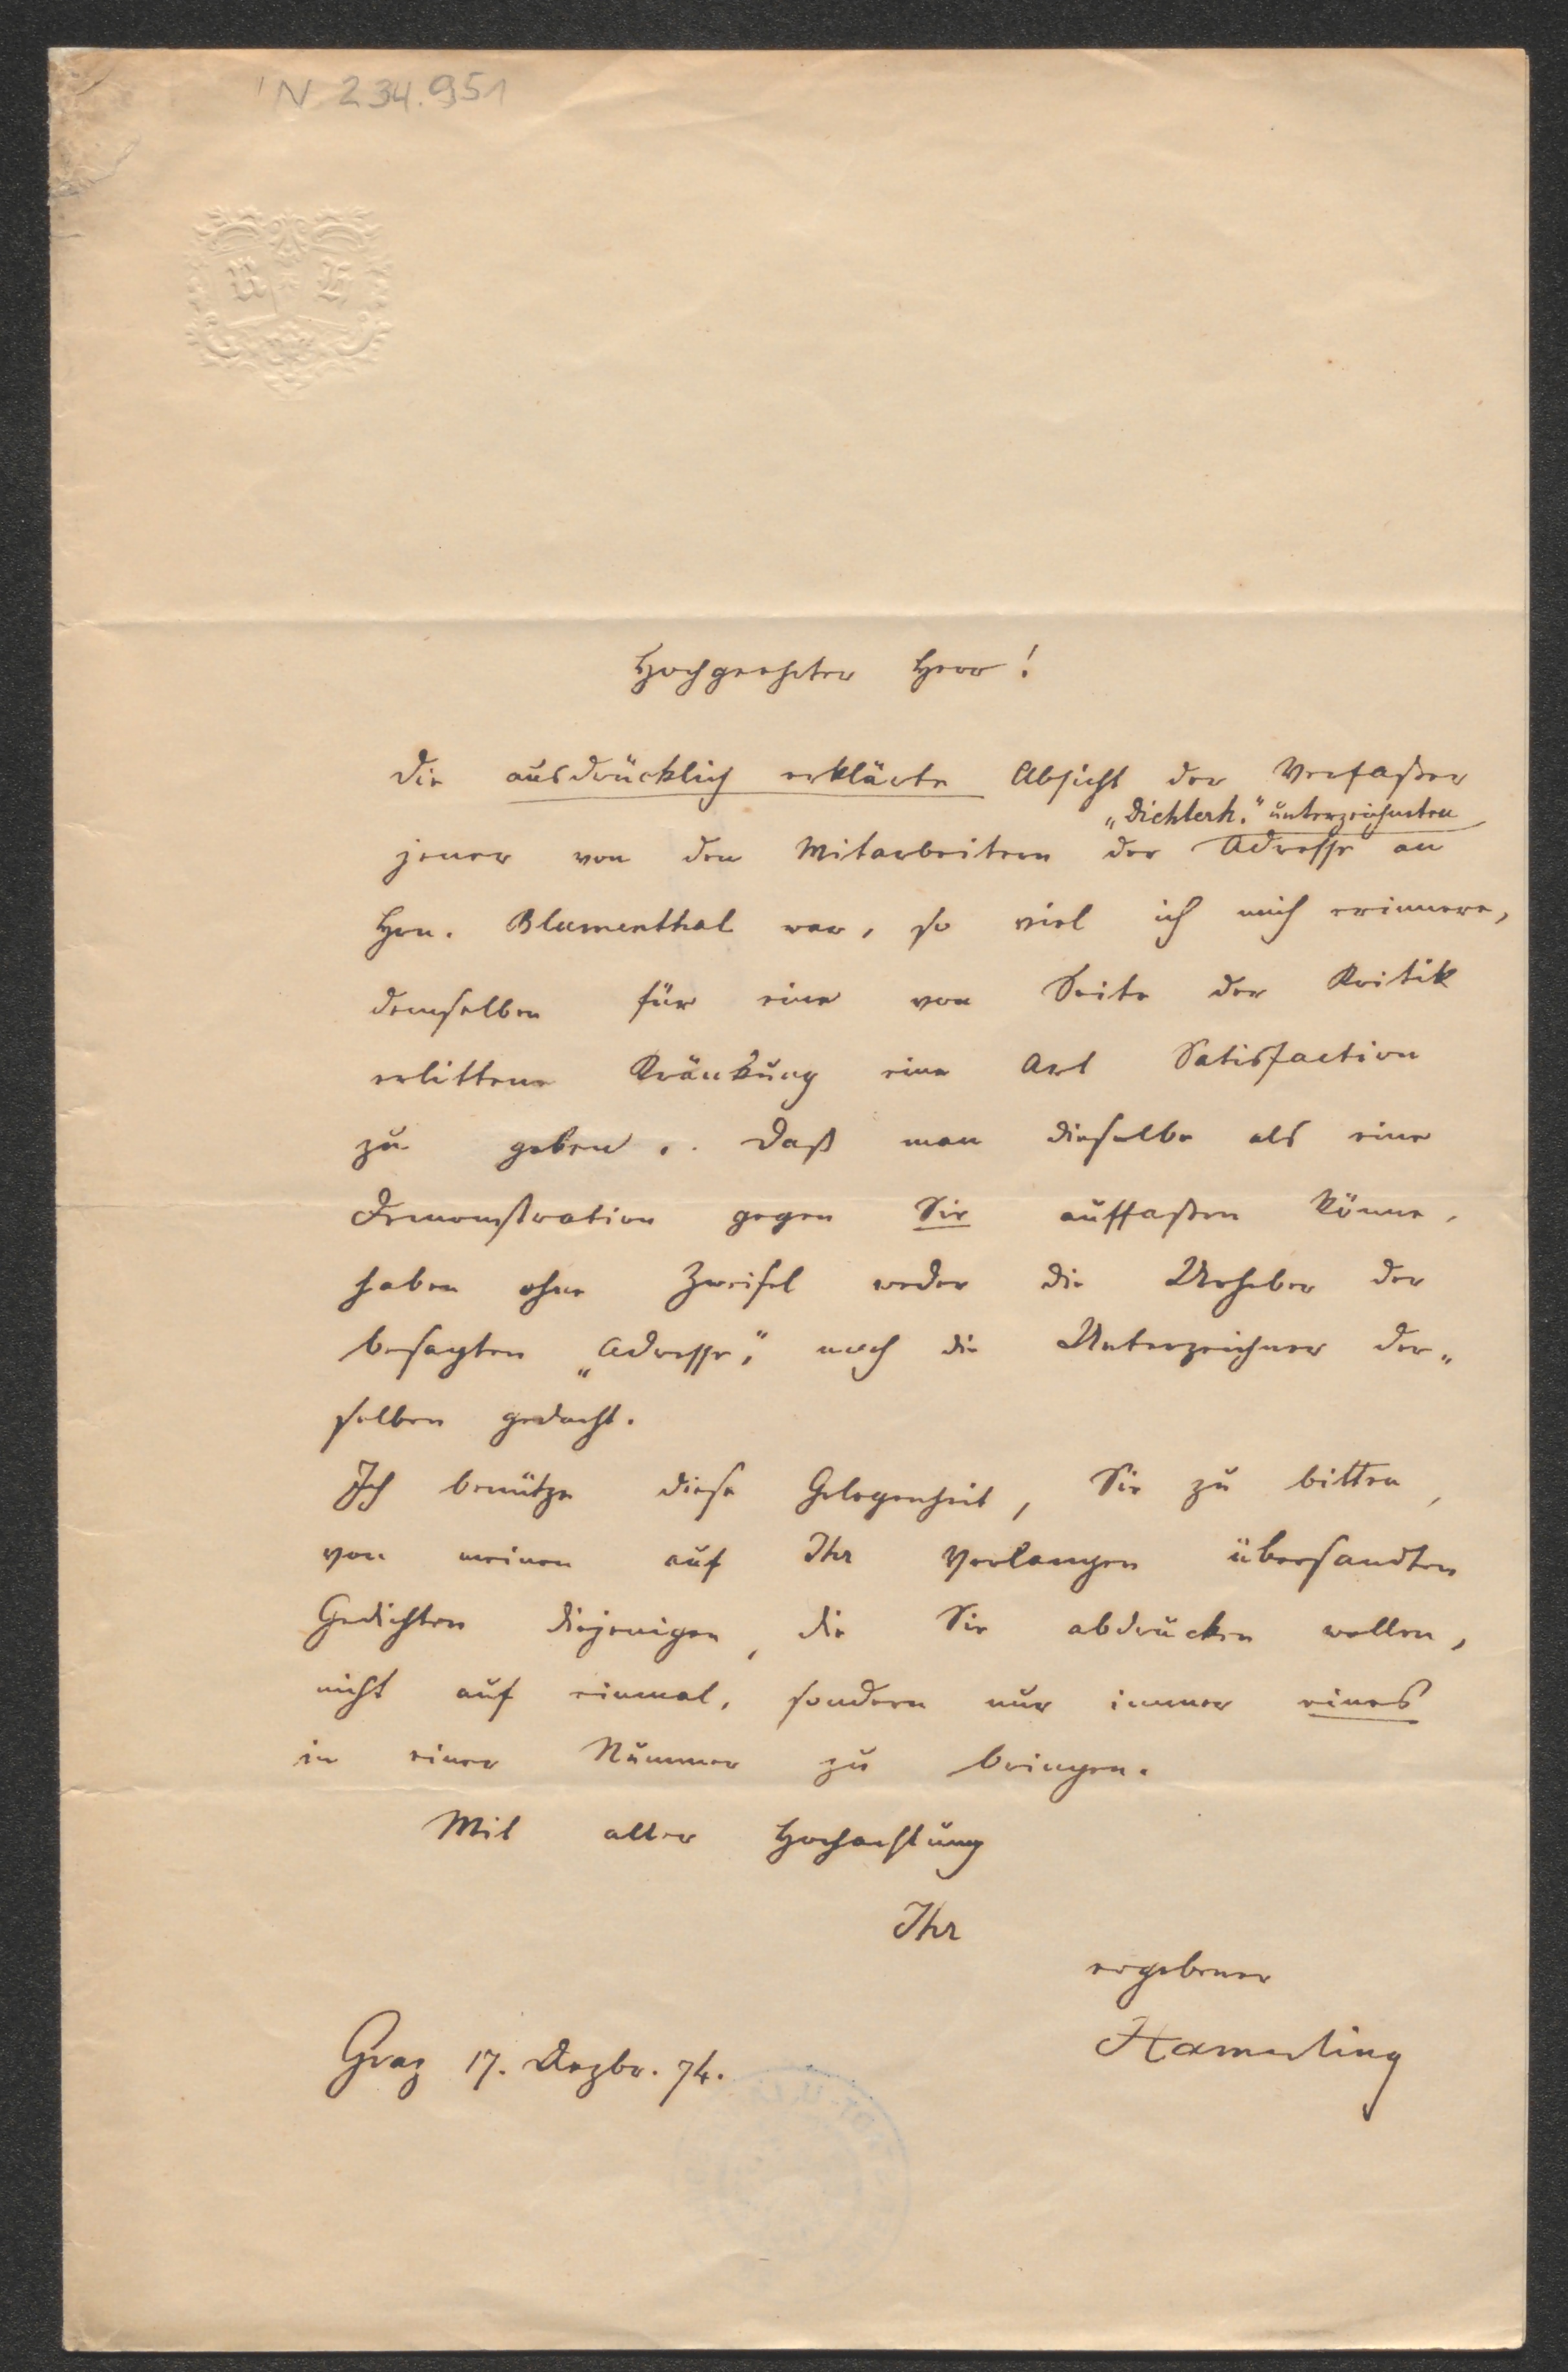 IN 234.951
R H
Hochgeehrter Herr!
Die ausdrücklich erklärte Absicht der Verfaßer
„Dichterh.“ unterzeichneten
jener von den Mitarbeitern der Adresse an
Hrn. Blumenthal war, so viel ich mich erinnere,
demselben für eine von Seite der Kritik
erlittene Kränkung eine Art Satisfaction
zu geben. Daß man dieselbe als eine
Demonstration gegen Sie auffaßen könne,
haben ohne Zweifel weder die Urheber der
besagten „Adresse“, noch die Unterzeichner der„
selben gedacht.
Ich benütze diese Gelegenheit, Sie zu bitten,
von meinen auf Ihr Verlangen übersandten
Gedichten diejenigen, die Sie abdrucken wollen,
nicht auf einmal, sondern nur immer eines
in einer Nummer zu bringen.
Mit aller Hochachtung
Ihr
ergebener
Hamerling
Graz 17. Dezbr. 74.